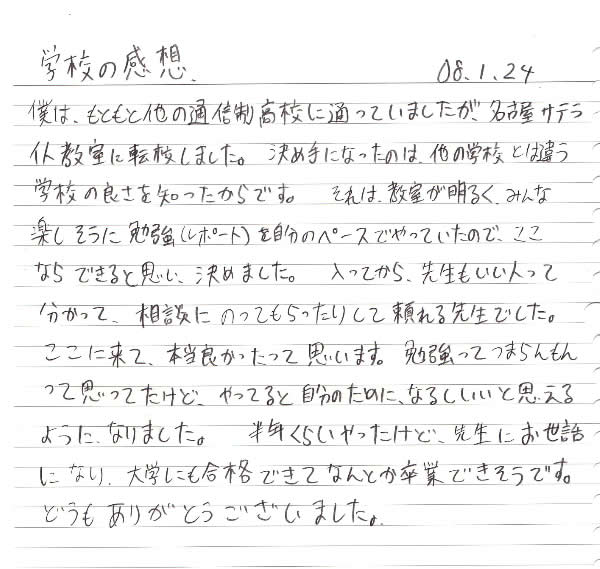 学校の感想、
08.1.24
僕は、もともと他の通信制高校に通っていましたが、名古屋サテラ
イト教室に転校しました。 決め手になったのは、他の学校とは違う
学校の良さを知ったからです。 それは、教室が明るく、みんな
楽しそうに勉強(レポート)を自分のペースでやっていたので、ここ
ならできると思い、決めました。 入ってから、先生もいい人って
分かって、相談にのってもらったりして頼れる先生でした。
ここに来て、本当良かったって思います。勉強ってつまらんもん
って思ってたけど、やってると自分のために、なるしいいと思える
ように、なりました。 半年くらいやったけど、先生にお世話
になり、大学にも合格できてなんとか卒業できそうです。
どうもありがとうございました。